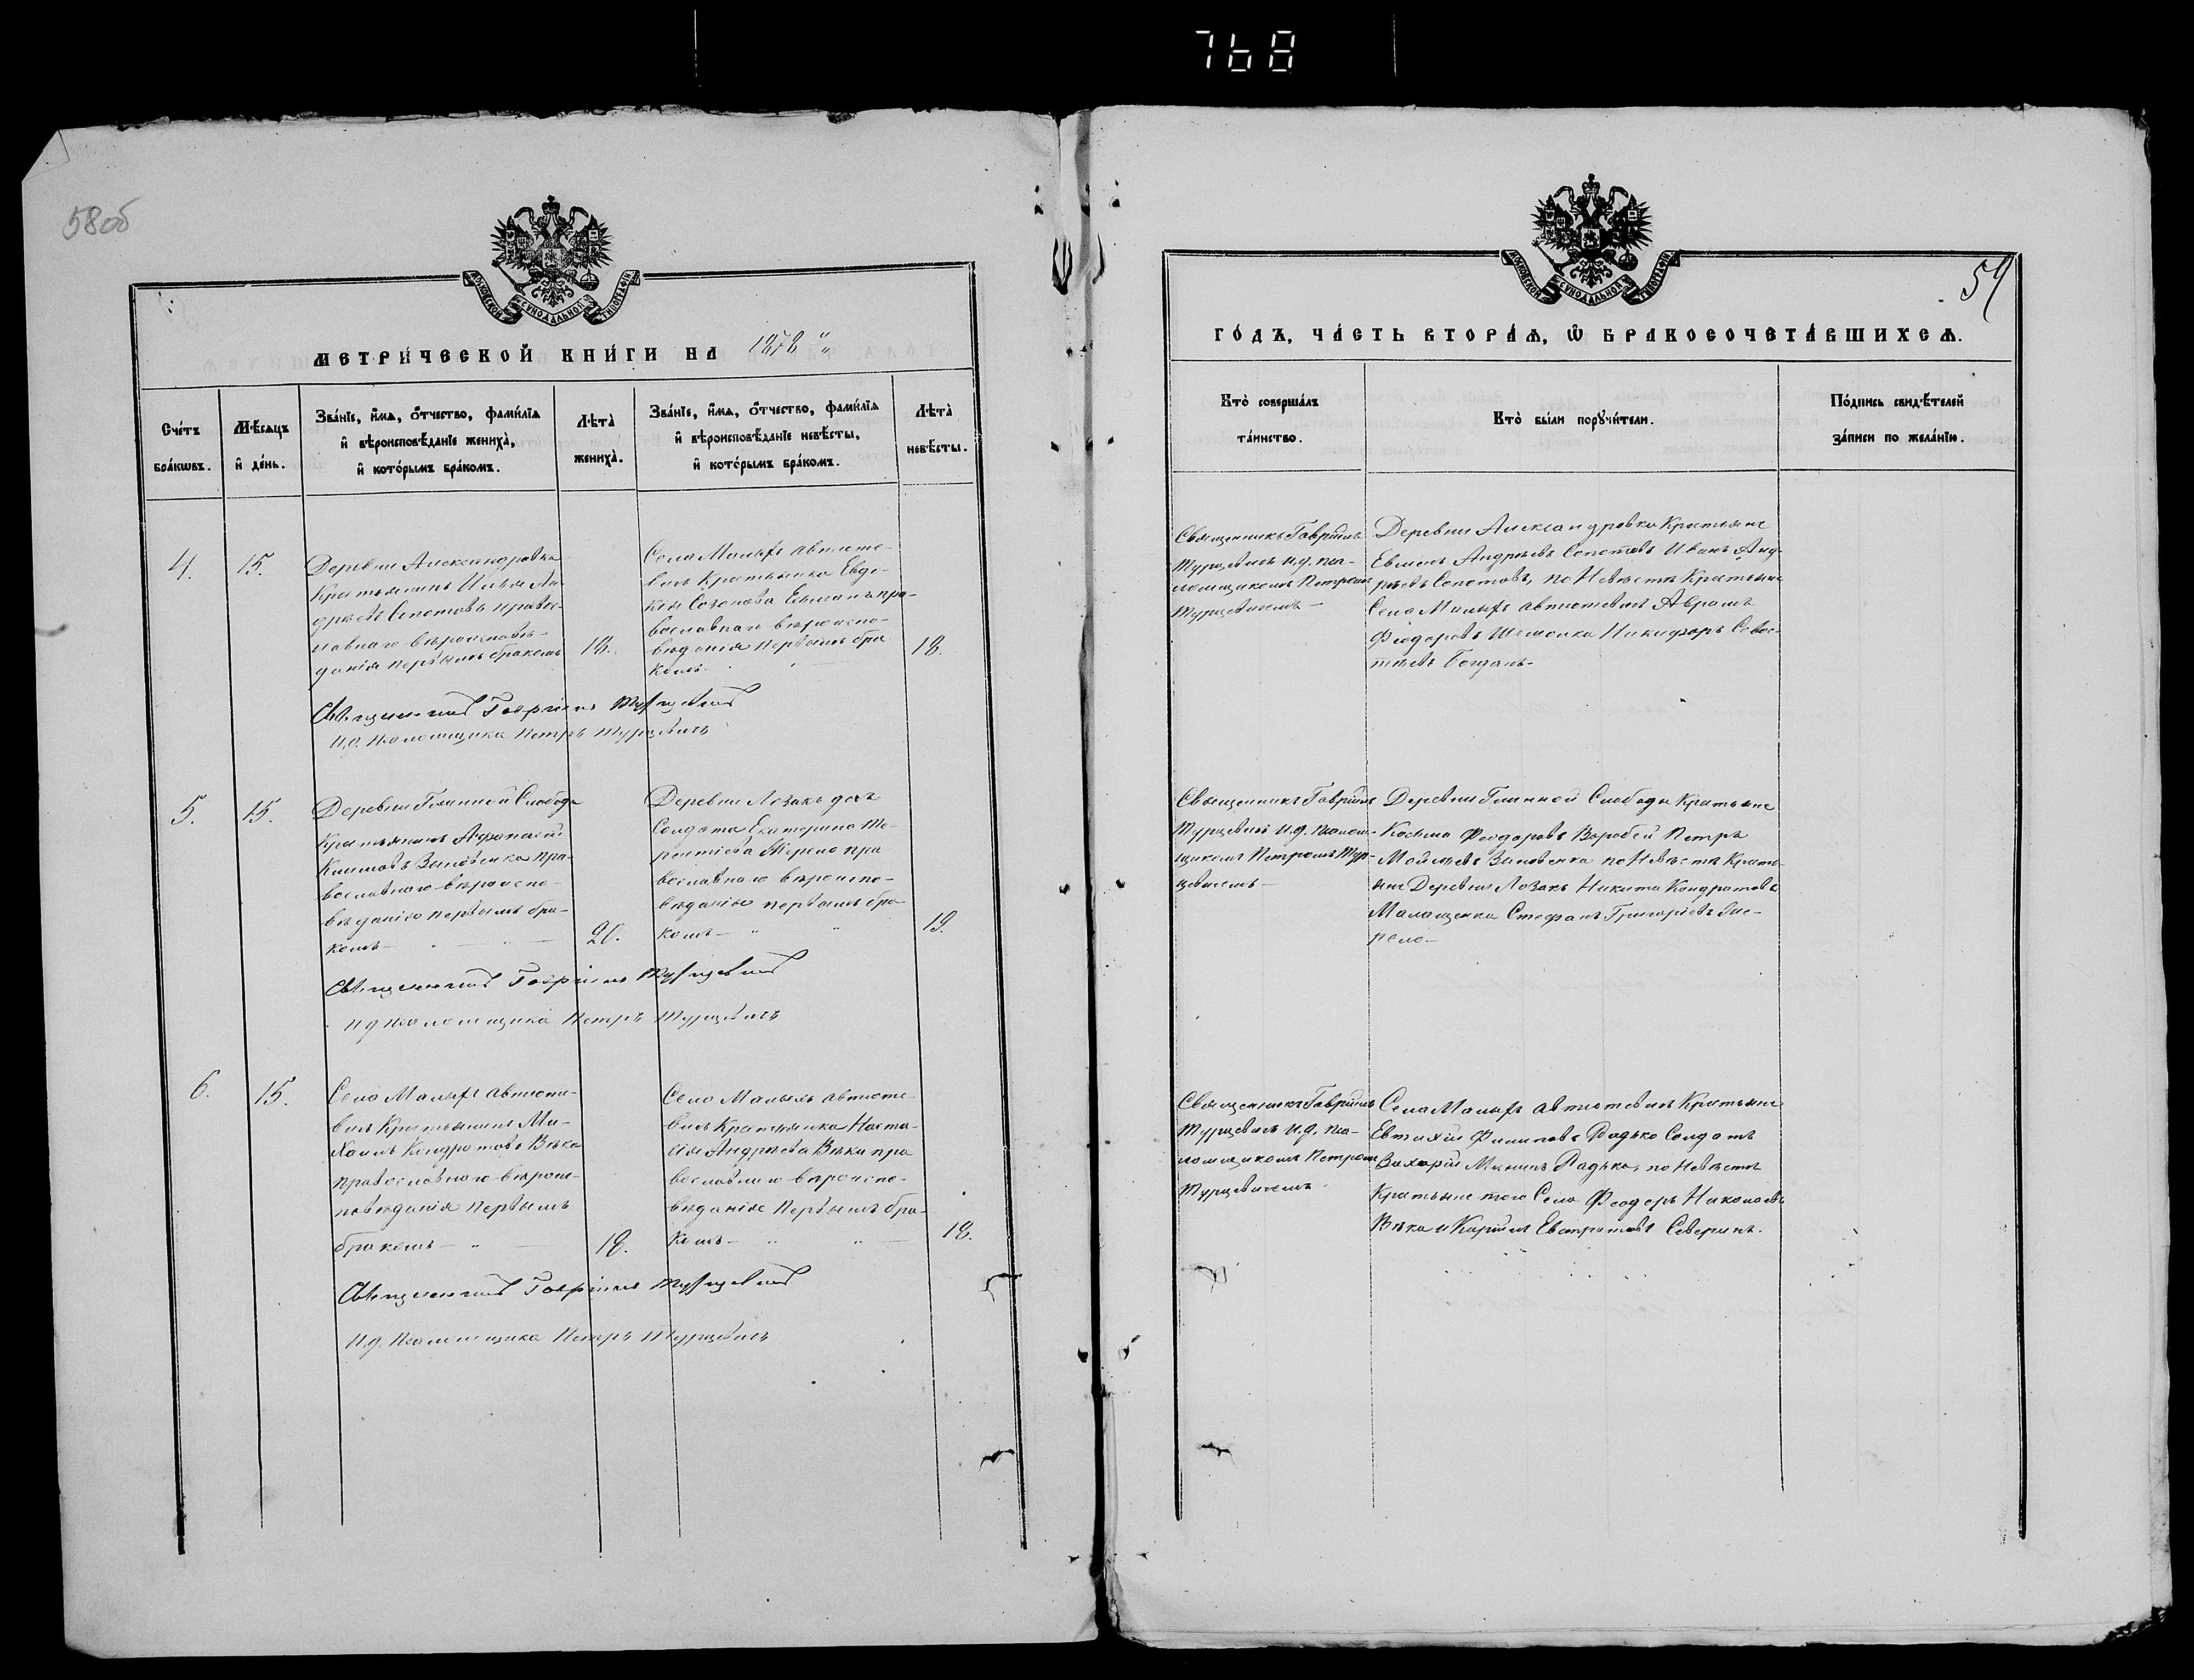 768
58об
МОСКОВСКОЙ СѴНОДАЛЬНОЙ ТИПОГРАФІИ
МЕТРИ́ЧЕСКОЙ КНИ́ГИ НА 1878
Сче́тъ бра́кѡвъ.
Мѣ́сяцъ и҆ де́нь.
Зва́нїе, и҆́мѧ, ѻ҆́тчество, фами́лїѧ
и҆ вѣроисповѣ́данїе жениха̀,
и҆ кото́рымъ бра́комъ.
Лѣ́та̀ жениха̀.
Зва́нїе, и҆́мѧ, ѻ҆́тчество, фами́лїѧ
и҆ вѣроисповѣ́данїе невѣ́сты,
и҆ кото́рымъ бра́комъ.
Лѣ́та̀ невѣ́сты.
4.
15.
Деревни Александровка
Крестьянинъ Илья Ан-
дреевъ Сопотовъ правос-
лавнаго вѣроисповѣ-
данія первымъ бракомъ
18.
Села Малыхъ автюте-
вичъ Крестьянка Евдо-
кія Созонова Ельманъ пра-
вославнаго вѣроиспо-
вѣданія первымъ бра
комъ
18.
Священникъ Гавріилъ Турцевичъ
И.д. Псаломщика Петръ Турцевичъ
5.
15.
Деревни Глинной Слободы
Крестьянинъ Афанасій
Климовъ Зиновенко пра-
вославнаго вѣроиспо-
вѣданія первымъ бра-
комъ
21.
Деревни Лозакъ дочь
Солдата Екатерина Те-
рентіева Жерело пра
вославнаго вѣроиспо-
вѣданія первымъ бра
комъ
19.
Священникъ Гавріилъ Турцевичъ
И д Псаломщика Петръ Турцевичъ
6.
15.
Села Малыхъ автюте-
вичъ Крестьянинъ Ми-
хаилъ Кондратовъ Вѣка
православнаго вѣроис-
повѣданія первымъ
бракомъ
18.
Села Малыхъ автюте-
вичъ Крестьянка Наста-
сія Андреева Вѣка пра
вославнаго вѣроиспо-
вѣданія первымъ бра-
комъ
18.
Священникъ Гавріилъ Турцевичъ
И.д. Псаломщика Петръ Турцевичъ
59
МОСКОВСКОЙ СѴНОДАЛЬНОЙ ТИПОГРАФІИ
ГО́ДЪ, ЧА́СТЬ ВТОРА́Ѧ, Ѡ҆ БРАКОСОЧЕТА́ВШИХСѦ.
Кто̀ соверша́лъ та́инство.
Кто̀ бы́ли порꙋчи́тели.
По́дпись свидѣ́телей за́писи по жела́нїю.
Священникъ Гавріилъ
Турцевичъ и.д. пса-
ломщикомъ Петромъ
Турцевичемъ
Деревни Александровка Крестьяне
Евменъ Андреевъ Сопотовъ Иванъ Анд-
реевъ Сопотовъ, по Невѣстѣ Крестьяне
Села Малыхъ автютевичъ Аврамъ
Феодоровъ Никифоръ Севос-
Богданъ
Священникъ Гавріилъ
Турцевичъ и.д. псалом-
щикомъ Петромъ Тур-
цевичемъ
Деревни Глинной Слободы Крестьяне
Косьма Феодоровъ Воробей Петръ
Моисеевъ Зиновенко по Невѣстѣ Кресть-
яне Деревни Лозакъ Никита Кондратовъ
Малащенко Стефанъ Григоріевъ Же-
рело
Священникъ Гавріилъ
Турцевичъ и.д. пса-
ломщикомъ Петромъ
Турцевичемъ
Села Малыхъ автютевичъ Крестьяне
Евтихій Филиповъ Радько Солдатъ
Захарій Радько, по Невѣстѣ
Крестьяне того Села Феодоръ Николаевъ
Вѣка и Кирилъ Евстратовъ Северинъ.